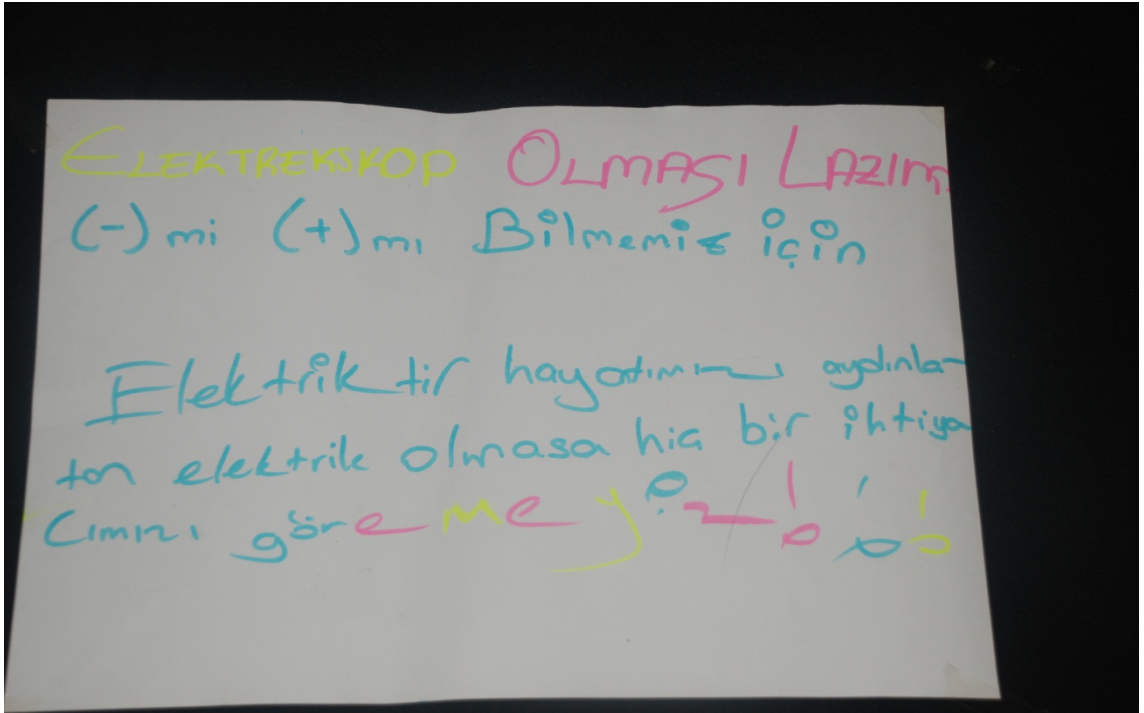 ELEKTREKSKOP OLMASI LAZIM
(-) mi (+) mı Bilmemiz için
Elektriktir hayatımızı aydınla-
tan elektrik olmasa hiç bir ihtiya
cımızı göremeyiz!!!